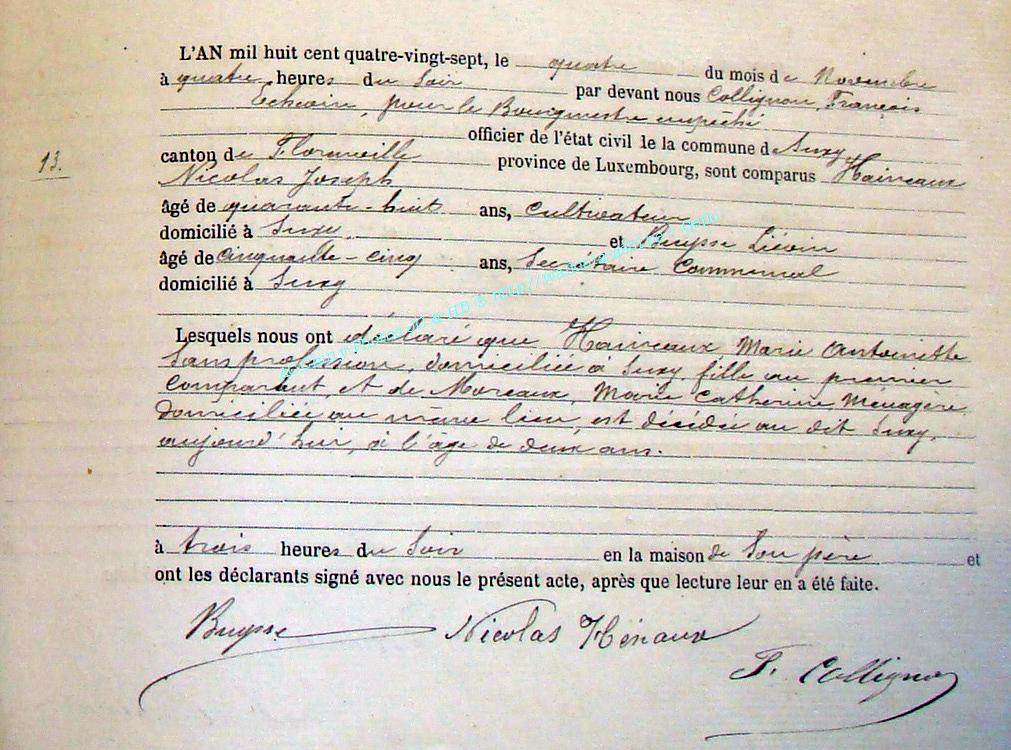 L'AN mil huit cent quatre-vingt-sept, le quatre du mois de Novembre
à quatre heures du Soir par devant nous Collignon, François
Echevin, pour le Bourgmestre empêché
officier de l'état civil de la commune de Suxy,
13.
canton de Florenville province de Luxembourg, sont comparus Hainaux
Nicolas Joseph
âgé de quarante-huit ans, Cultivateur
domicilié à Suxy, et Buysse Liévin
âgé de Cinquante-cinq ans, Secrétaire Communal
domicilié à Suxy
Lesquels nous ont déclaré que Hainaux Marie Antoinette
Sans profession, domiciliée à Suxy, fille du premier
Comparant, et de Moreaux, Marie Catherine, Menagère
domiciliée au même lieu, est décédée au dit Suxy,
aujourd'hui, à l'âge de deux ans.
à trois heures du Soir en la maison de Son père et
ont les déclarants signé avec nous le présent acte, après que lecture leur en a été faite.
Buysse Nicolas Hénaux
F. Collignon